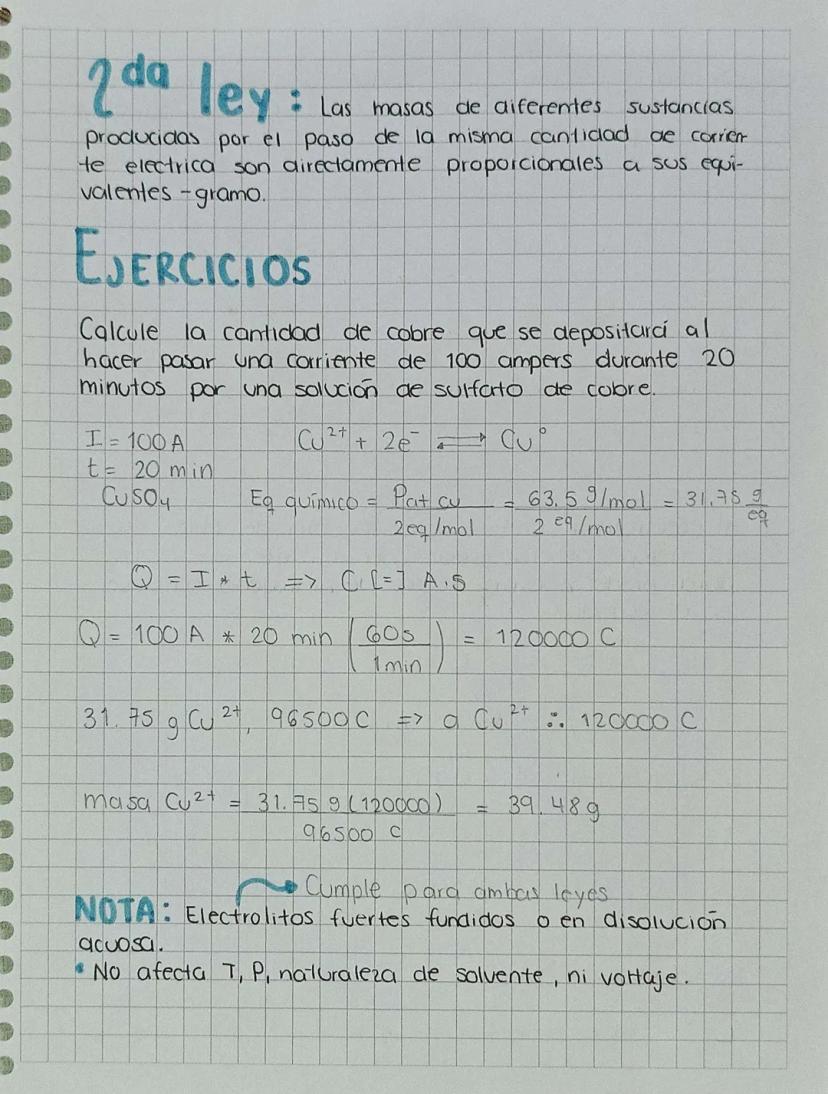 2da ley: Las masas de diferentes sustancias
producidas por el paso de la misma cantidad de corrien
te electrica son directamente proporcionales a sus equi-
valentes - gramo.
EJERCICIOS
Calcule la cantidad de cobre que se depositará al
hacer pasar una corriente de 100 ampers durante 20
minutos por una solución de sulfato de cobre.
I = 100 A Cu²⁺ + 2e⁻ ⇌ Cu°
t = 20 min
CuSO₄ Eq químico = Pat cu / 2eq/mol = 63.5 g/mol / 2 eq/mol = 31.75 g/eq
Q = I * t => C [=] A.s
Q = 100 A * 20 min (60s / 1min) = 120000 C
31.75 g Cu²⁺, 96500 C => a Cu²⁺ ∴ 120000 C
masa Cu²⁺ = 31.75 g (120000) / 96500 C = 39.48 g
Cumple para ambas leyes
NOTA: Electrolitos fuertes fundidos o en disolución
acuosa.
• No afecta T, P, naturaleza de solvente, ni voltaje.